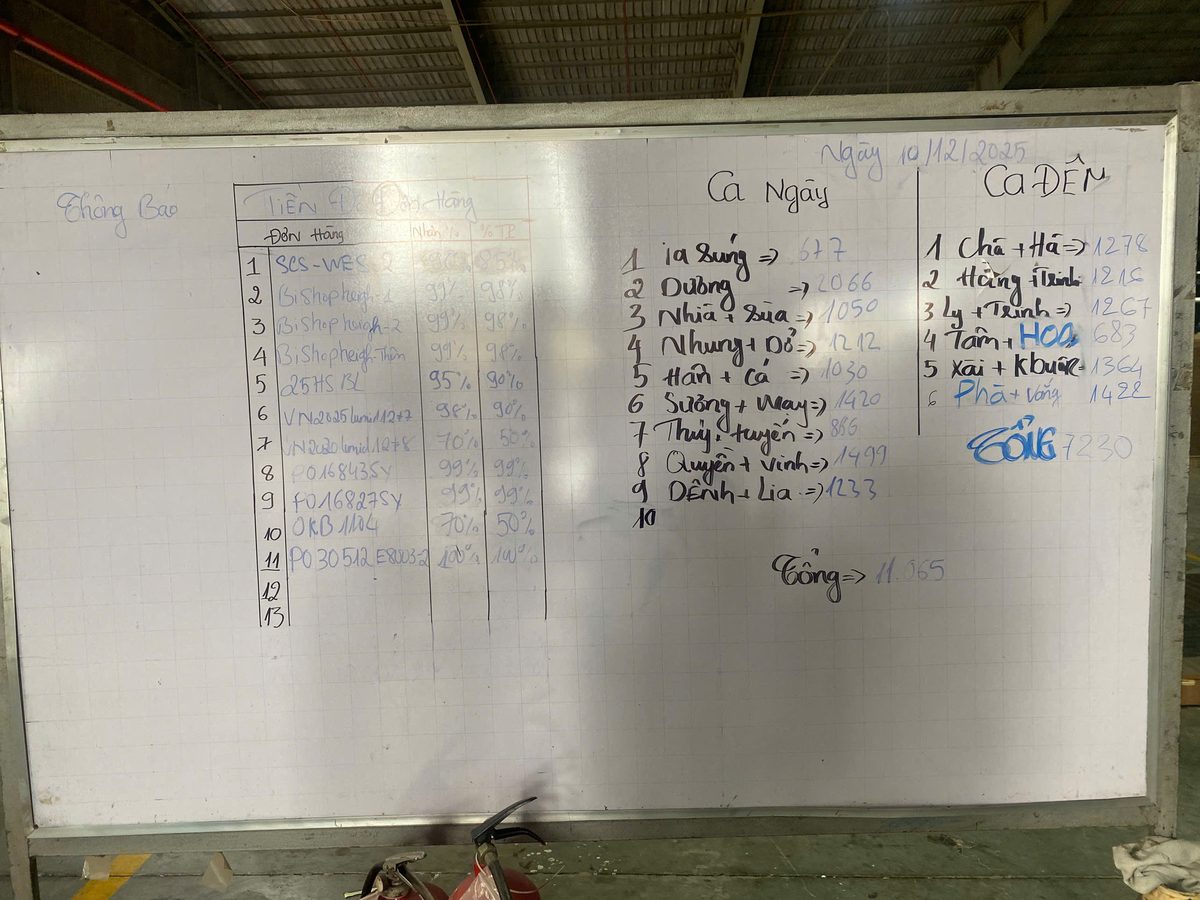 Ngày 10/12/2025
Thông Báo
Tiến Độ Đơn Hàng
Đơn Hàng Nhân % % TP
1 SCS-WES-2 85%
2 Bishopheigh-1 99% 98%
3 Bishopheigh-2 99% 98%
4 Bishopheigh-Thân 99% 98%
5 25HSBL 95% 90%
6 90%
7 70% 50%
8 PO16843SY 99% 99%
9 PO16827SY 99% 99%
10 OKB1104 70% 50%
11 PO30512E8003-2 100% 100%
12
13
Ca Ngày
1 ia Súng => 677
2 Dương => 2066
3 Nhiă + Sùa => 1050
4 Nhung + Đỏ => 1212
5 Hân + Cá => 1030
6 Sưởng + May => 1420
7 Thuỷ, tuyến => 886
8 Quyền + Vinh => 1499
9 DÊNh + Lia => 1233
10
Tổng => 11.065
CA ĐÊM
1 Chă + Hà => 1278
2 Hăng + Trinh 1216
3 Ly + Trinh => 1267
4 Tâm + HOA 683
5 Xài + Kbuôr 1364
6 Phà + Vàng 1422
TổNG 7230